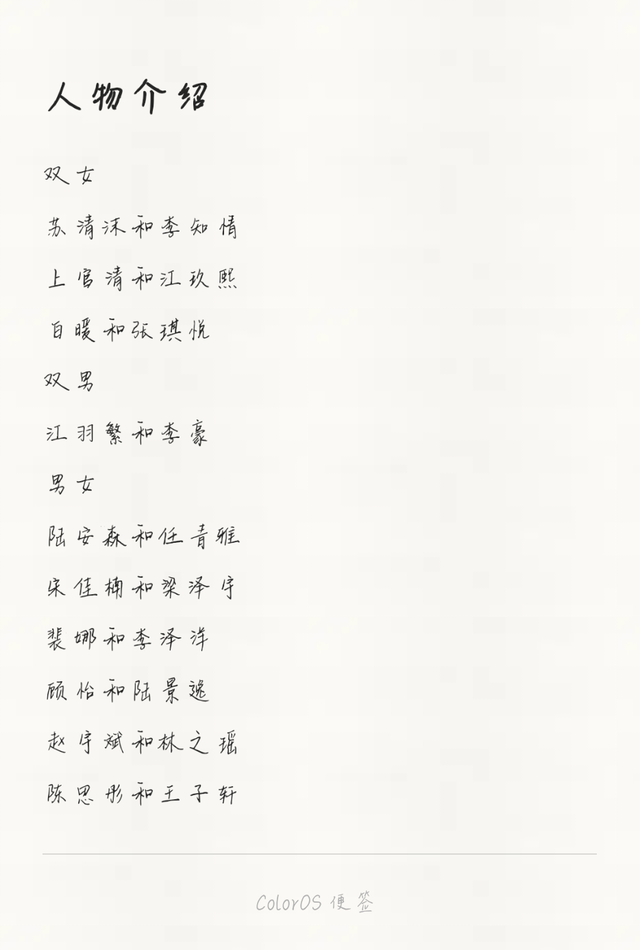 人物介绍
双女
苏清沫和李知情
上官清和江玖熙
白暖和张琪悦
双男
江羽繁和李豪
男女
陆安森和任青雅
宋佳楠和梁泽宇
裴娜和李泽洋
顾怡和陆景逸
赵宇斌和林之瑶
陈思彤和王子轩
ColorOS 便签